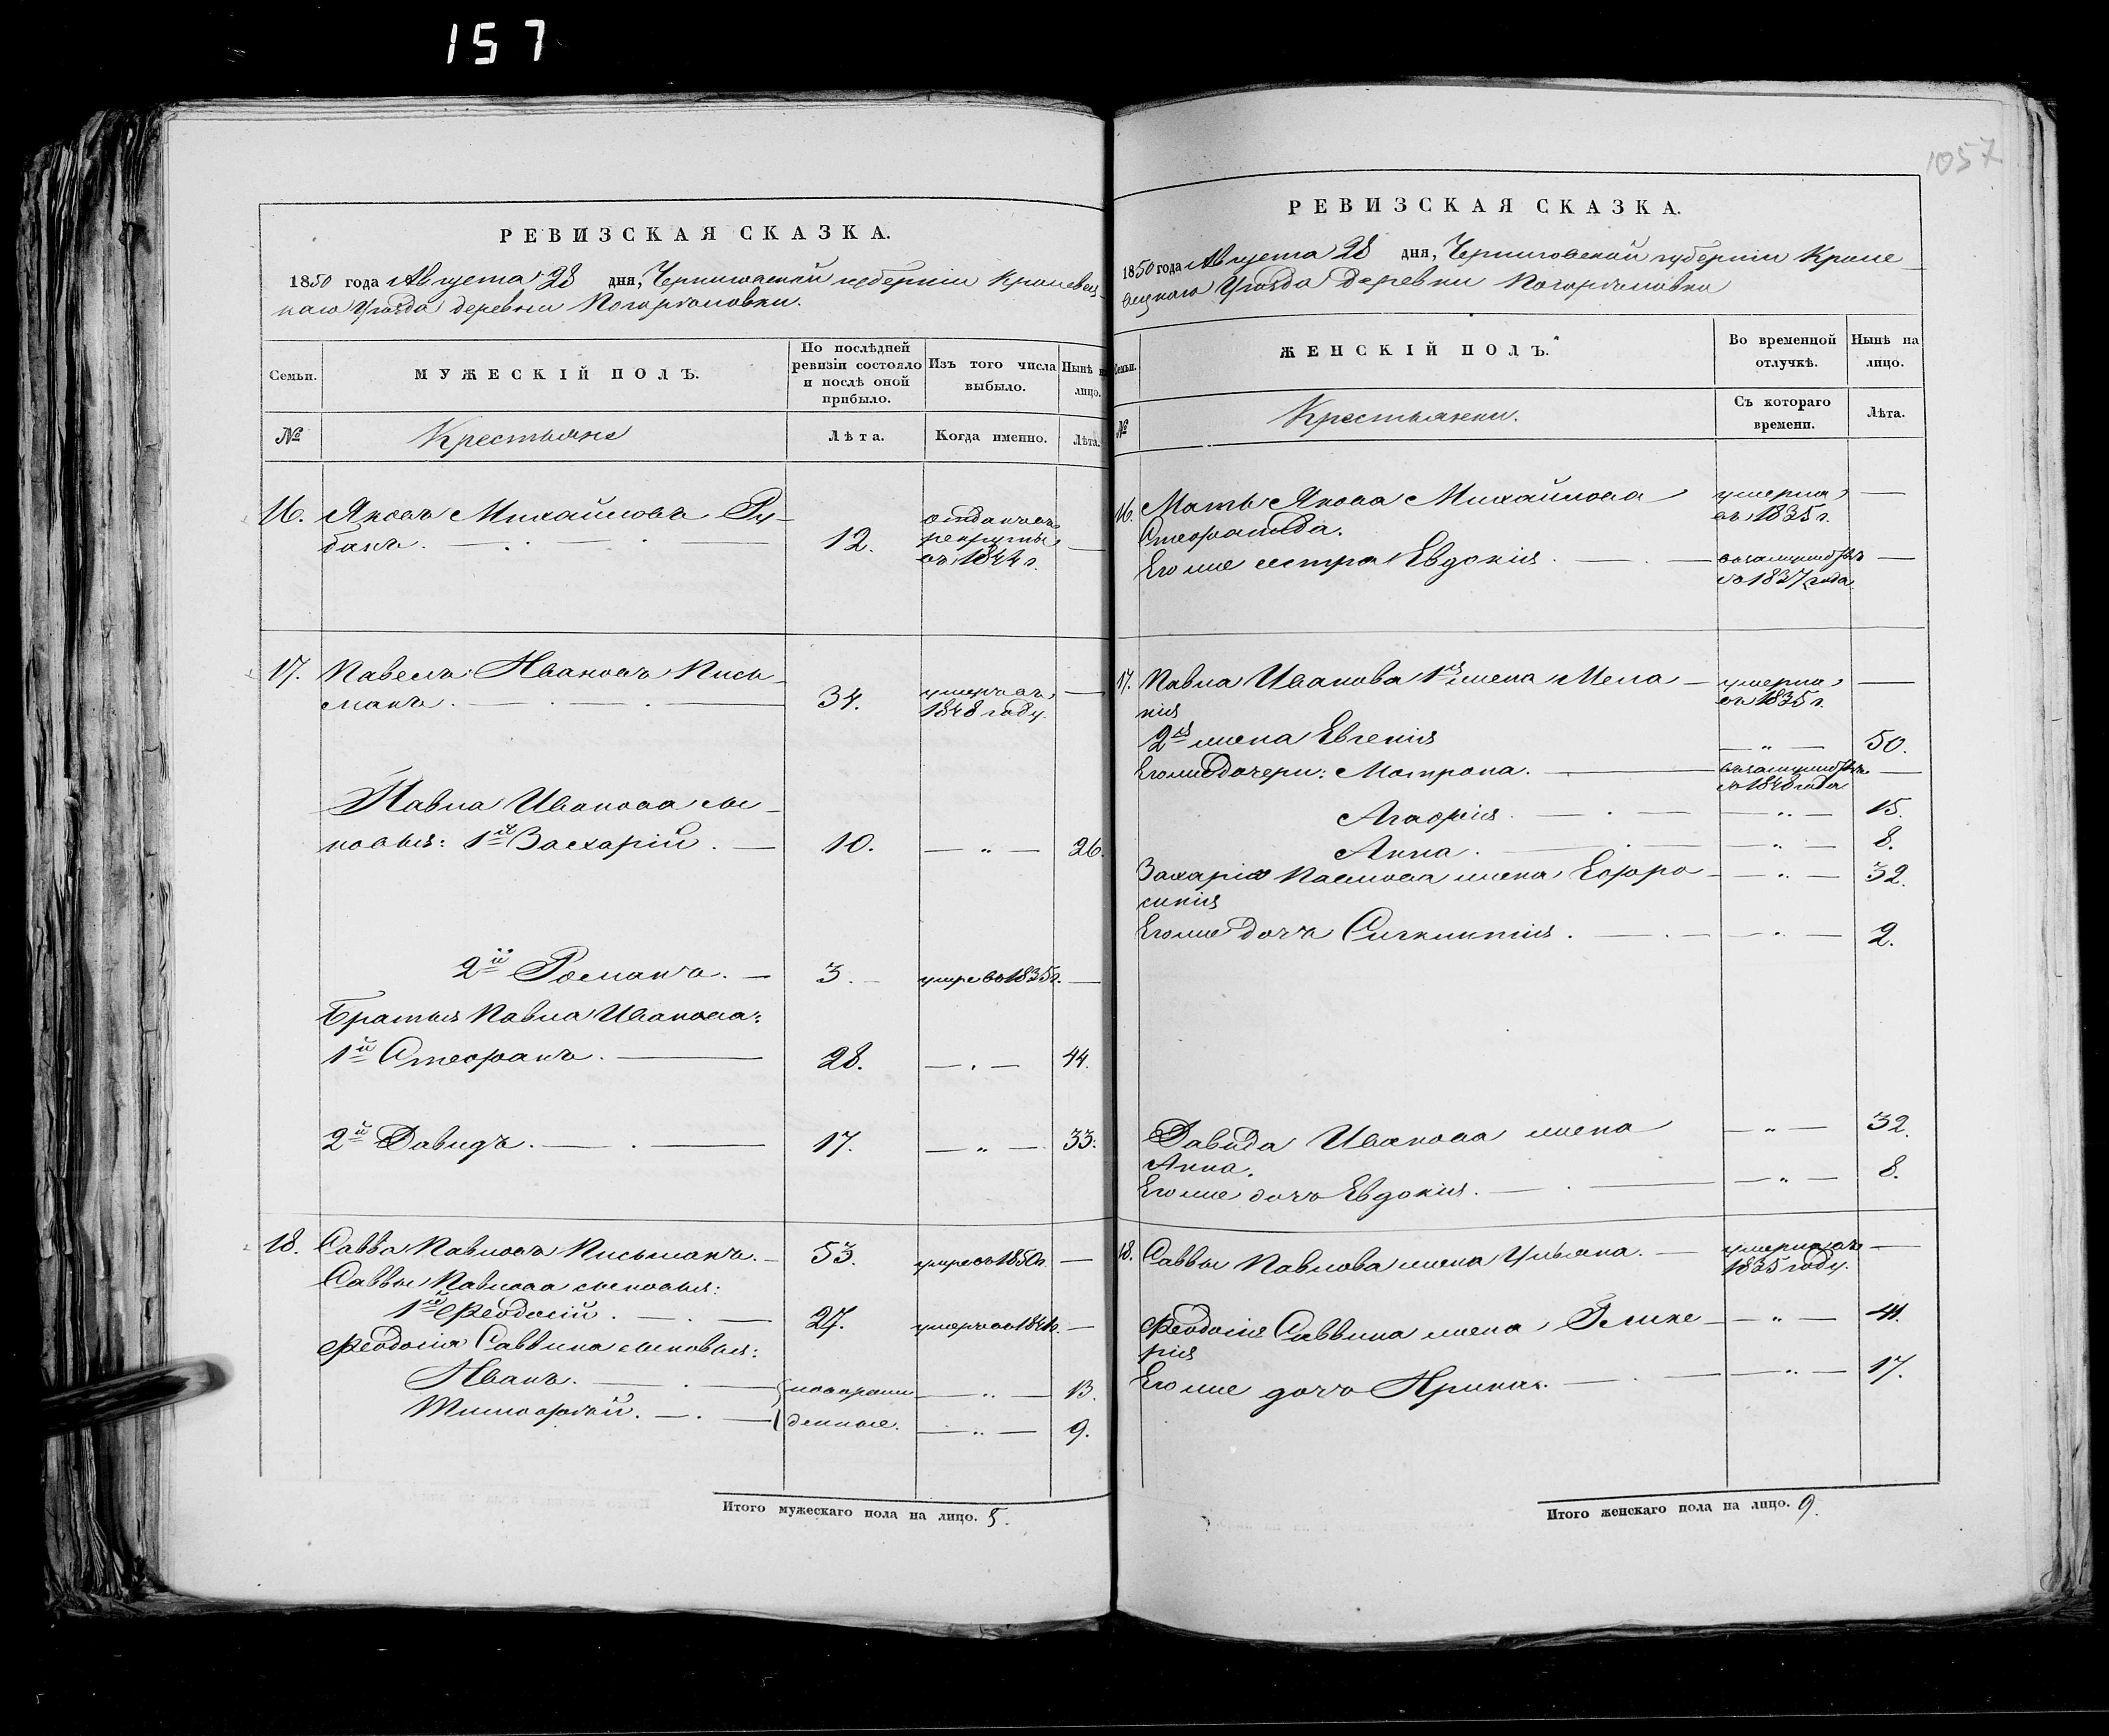 157
1057
РЕВИЗСКАЯ СКАЗКА.
1850 года Августа 28 дня, Черниговской губерніи Кролевец-
каго Уѣзда деревни Погорѣловки.
Семьи.
МУЖЕСКІЙ ПОЛЪ.
По послѣдней
ревизіи состояло
и послѣ оной
прибыло.
Изъ того числа
выбыло.
Нынѣ на
лицо.
№
Крестьяне
Лѣта.
Когда именно.
Лѣта.
16. Яковъ Михайловъ Ры-
банъ. 12. отданъ въ
рекруты
въ 1844 г. —
17. Павелъ Ивановъ Пись-
манъ. 34. умеръ въ
1848 году. —
Павла Иванова сы-
новья: 1й Захарій. — 10. — „ — 26.
2й Романъ. — 3. умре въ 1835 г. —
Братья Павла Иванова:
1й Стефанъ. 28. — „ — 44.
2й Давидъ. 17. — „ — 33.
18. Савва Павловъ Письманъ. 53. умре въ 1850 г. —
Саввы Павлова сыновья:
1й Феодосій. 27. умеръ въ —
Феодосія Саввина сыновья:
Иванъ. новорож- — „ — 13.
Тимофѣй. денные. — „ — 9.
Итого мужескаго пола на лицо. 5.
РЕВИЗСКАЯ СКАЗКА.
1850 года Августа 28 дня, Черниговской губерніи Кроле-
вецкаго Уѣзда деревни Погорѣловки
Семьи.
ЖЕНСКІЙ ПОЛЪ.
Во временной
отлучкѣ.
Нынѣ на
лицо.
№
Крестьянки.
Съ котораго
времени.
Лѣта.
16. Мать Якова Михайлова умерла —
Стефанида. въ 1835 г.
Его же сестра Евдокія. въ замужествѣ —
съ 1837 года
17. Павла Иванова 1я жена Мела- умерла —
нія въ 1835 г.
2я жена Евгенія — „ — 50.
Его же дочери: Матрона. въ замужествѣ —
съ 1848 года
Агафія. — „ — 15.
Анна. — „ — 8.
Захарія Павлова жена Ефро- — „ — 32.
синія
Его же дочь Сигклитія. — „ — 2.
Давида Иванова жена — „ — 32.
Анна.
Его же дочь Евдокія. — „ — 8.
18. Саввы Павлова жена Ульяна. — умерла въ —
1835 году.
Феодосія Саввина жена Глике- — „ — 41.
рія
Его же дочь Ирина. — „ — 17.
Итого женскаго пола на лицо. 9.